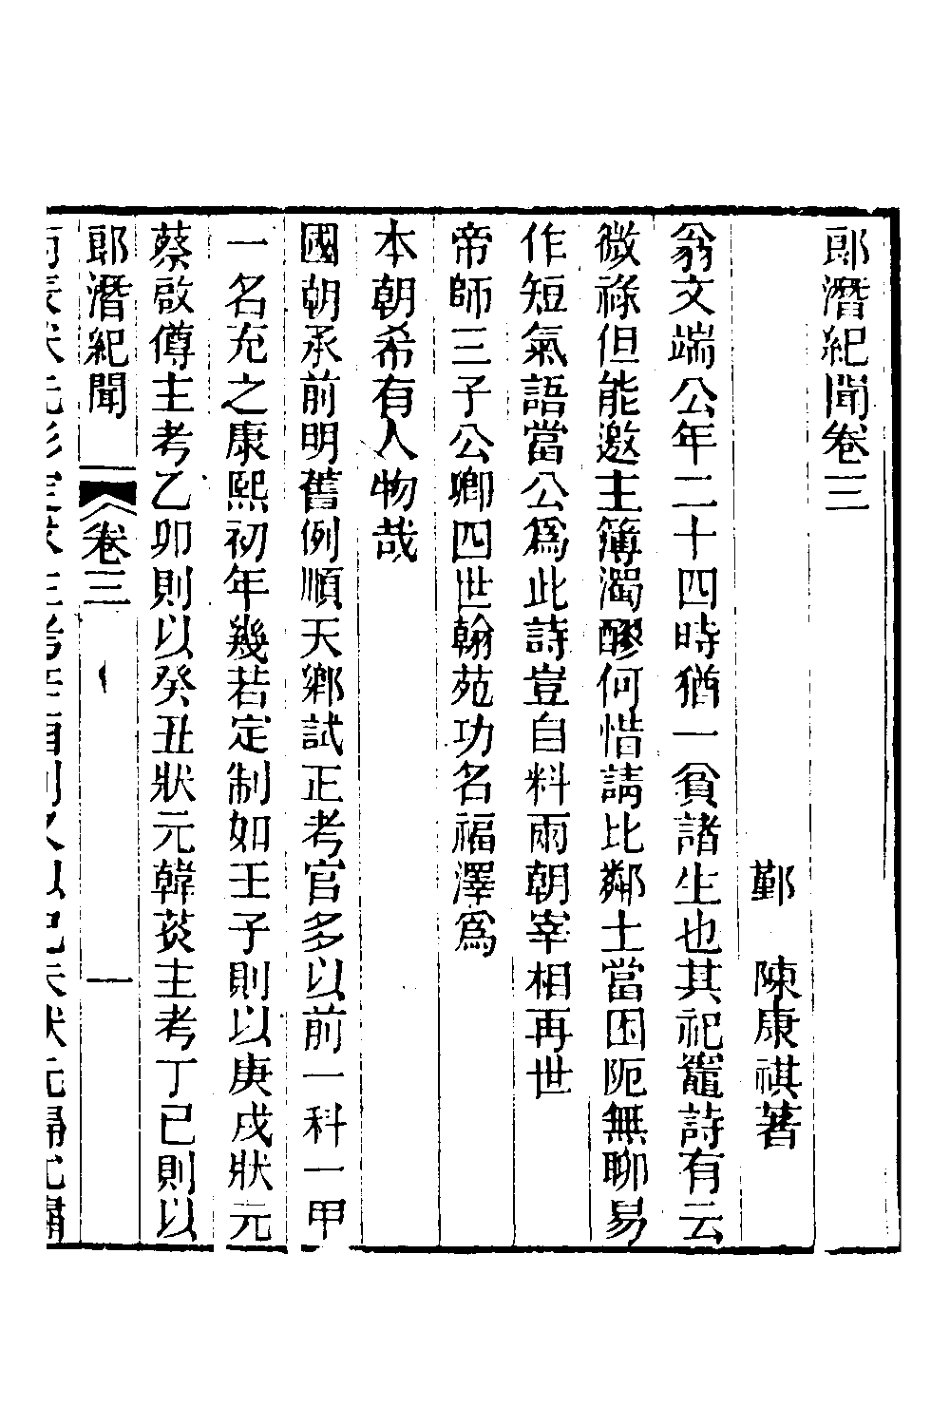 郎潛紀聞卷三
鄞　陳康祺著
翁文端公年二十四時猶一貧諸生也其祀竈詩有云
微祿但能邀主簿濁醪何惜請比鄰士當困阨無聊易
作短氣語當公爲此詩豈自料兩朝宰相再世
帝師三子公卿四世翰苑功名福澤爲
本朝希有人物哉
國朝承前明舊例順天鄉試正考官多以前一科一甲
一名充之康熙初年幾若定制如壬子則以庚戌狀元
蔡啟僔主考乙卯則以癸丑狀元韓菼主考丁巳則以
郎潛紀聞　卷三　一